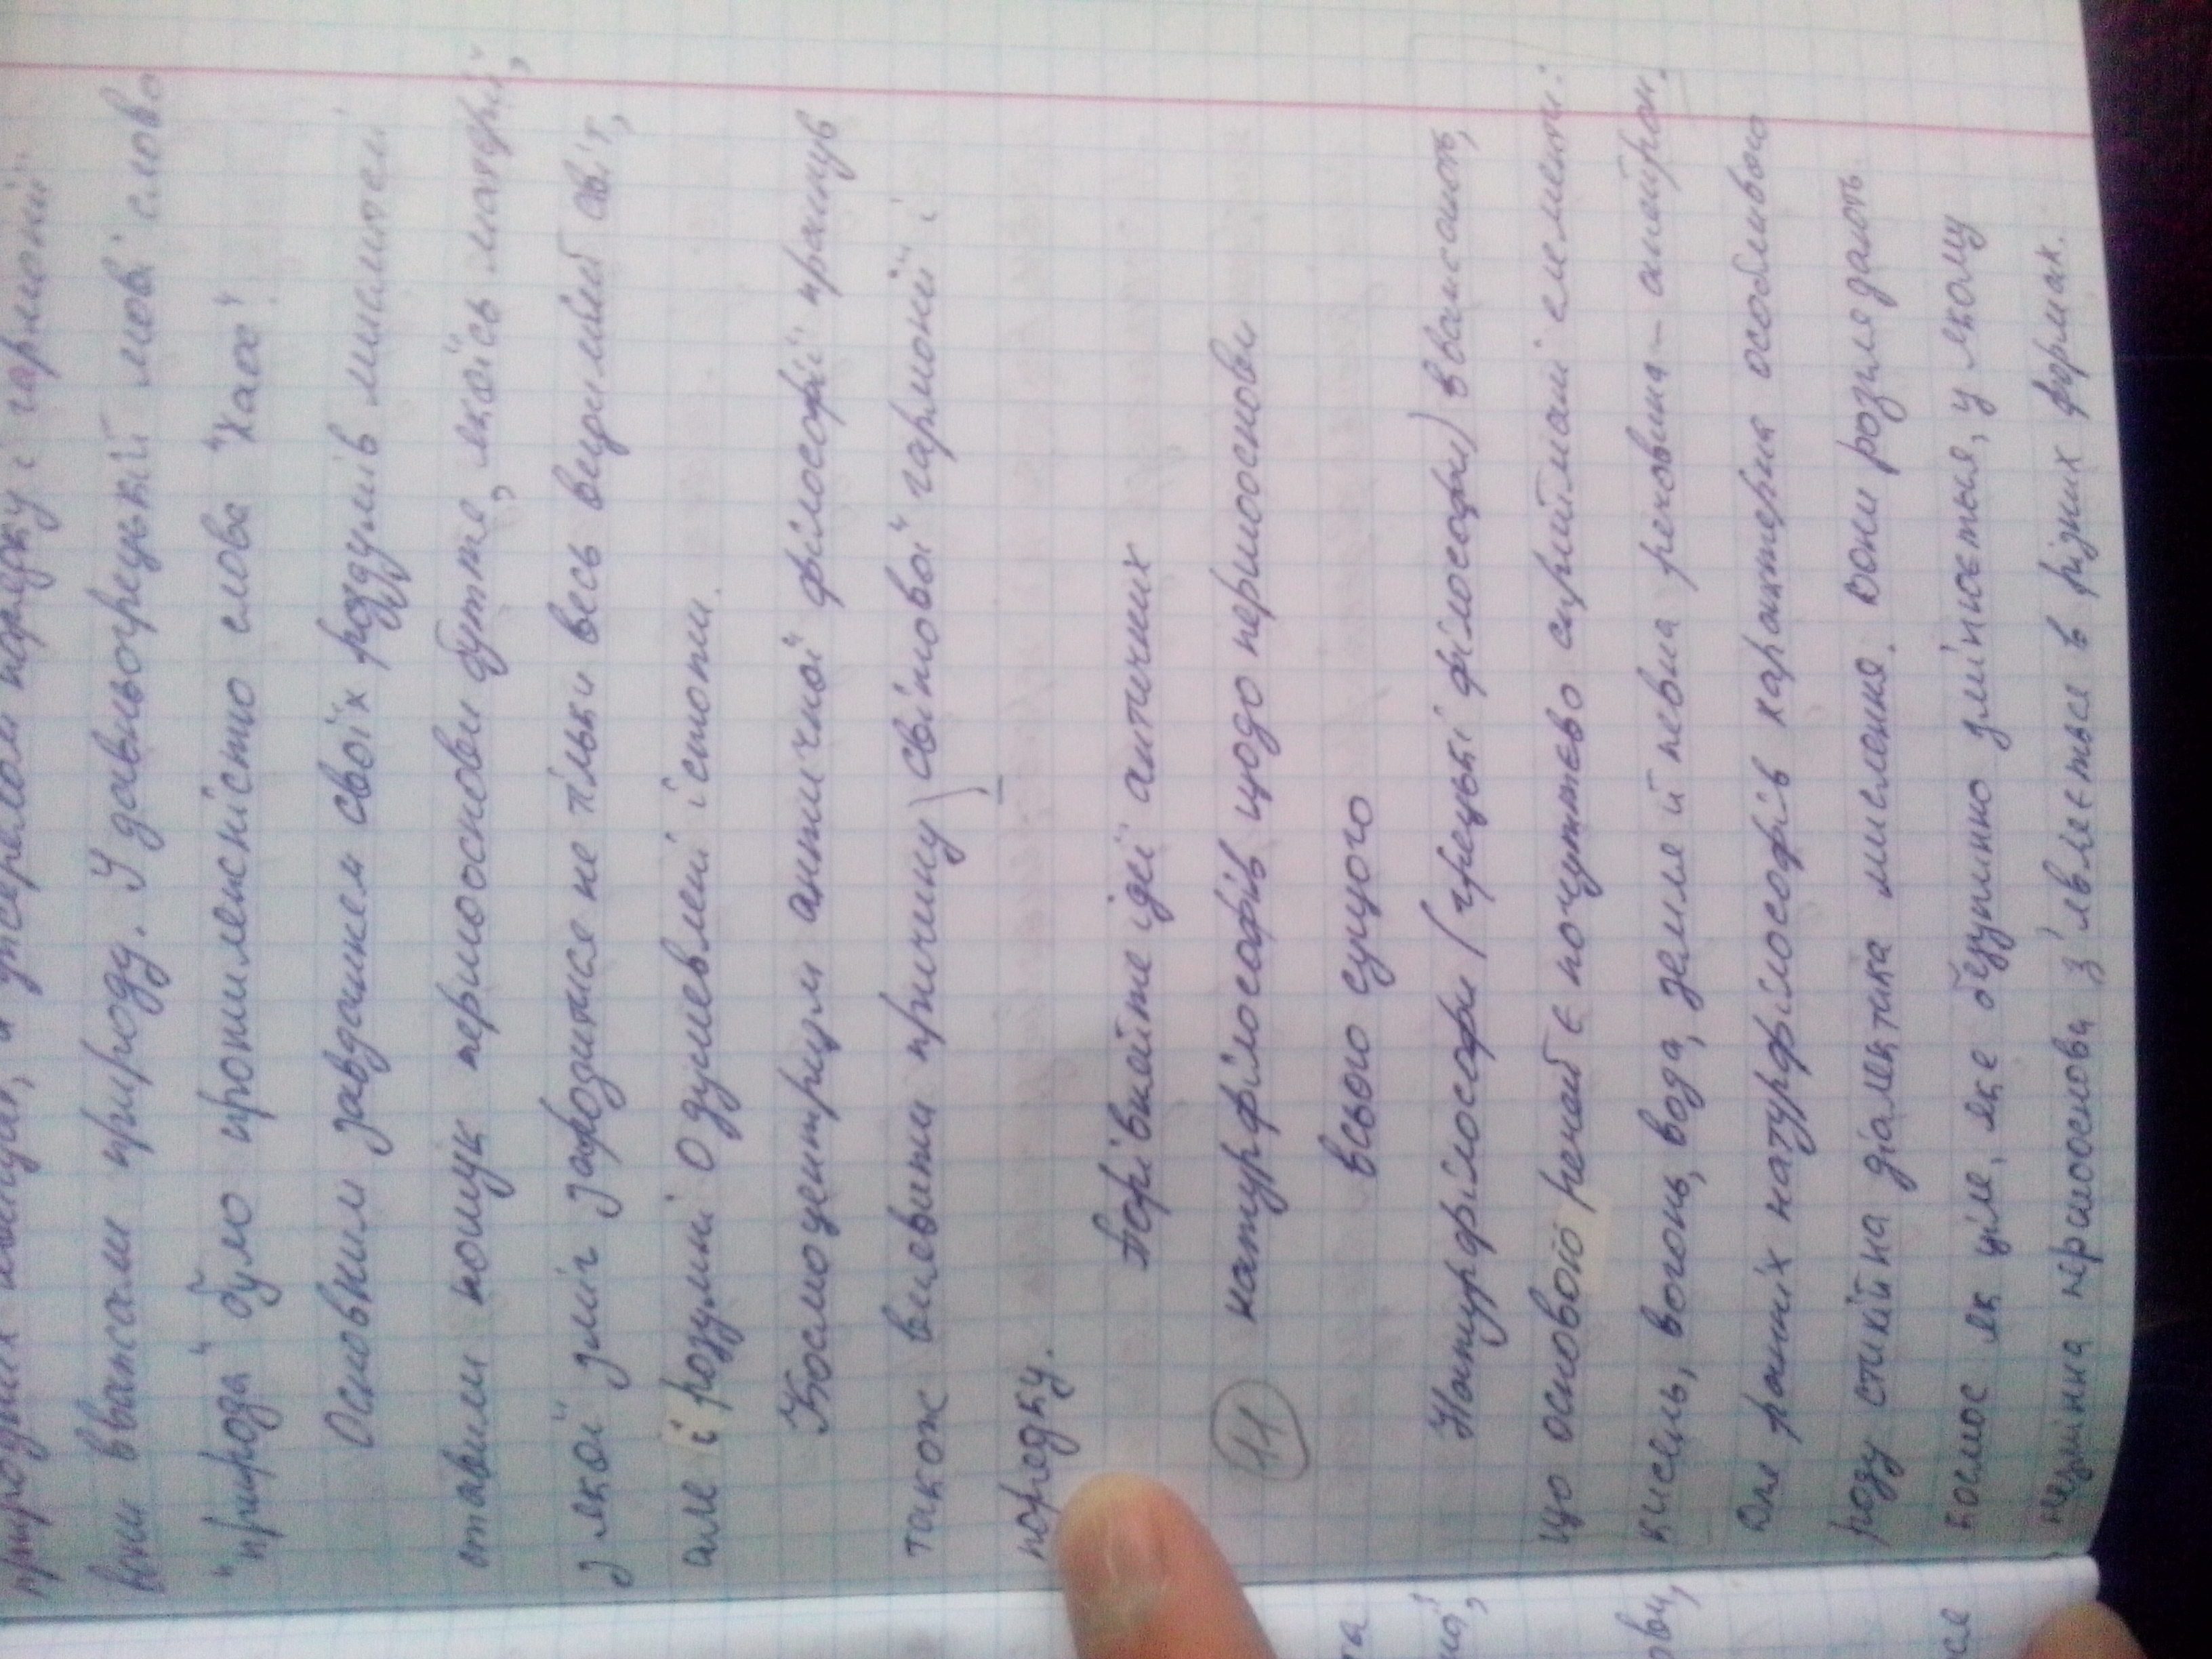 природних явищ, а джерелом порядку і гармонії
вони вважали природу. У давньогрецькій мові слово
"природа" було протилежністю слова "Хаос".
Основним завданнем своїх роздумів мислителі
ставили пошук першооснови буття, якоїсь матерії,
з якої зміг зародитися не тільки весь видимий світ,
але і розумні одушевлені істоти.
Космоцентризм античної філософії прагнув
також виявити причину світової гармонії і
порядку.
Порівняйте ідеї античних
11 натурфілософів щодо першооснови
всього сущого
Натурфілософи (грецькі філософи) вважають,
що основою речей є почуттєво сприймані елементи:
кисень, вогонь, вода, земля й певна речовина - апейрон.
Для ранніх натурфілософів характерна особливого
роду стихійна діалектика мислення. Вони розглядають
космос як ціле, яке безупинно змінюється, у якому
незмінна першооснова з'являється в різних формах.
та
ної,
ови,
ся